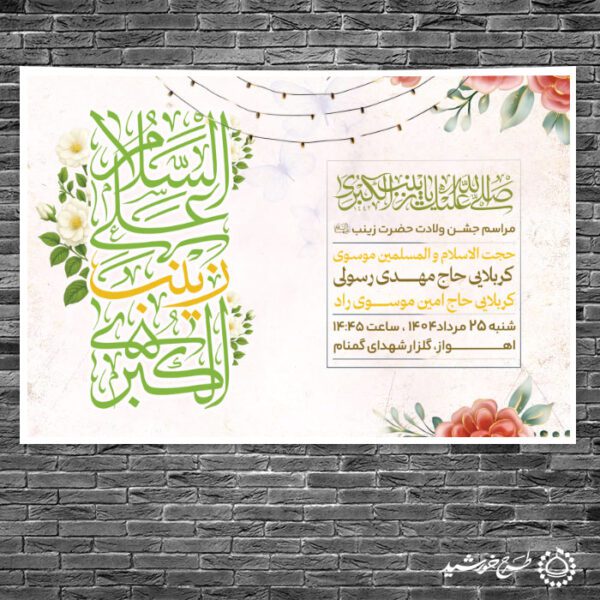 السلام
علی
زینب
الکبری
صلی الله علیک یا زینب الکبری
مراسم جشن ولادت حضرت زینب
حجت الاسلام و المسلمین موسوی
کربلایی حاج مهدی رسولی
کربلایی حاج امین موسوی راد
شنبه ۲۵ مرداد ۱۴۰۴ ، ساعت ۱۴:۴۵
اهواز، گلزار شهدای گمنام
طرح خورشید